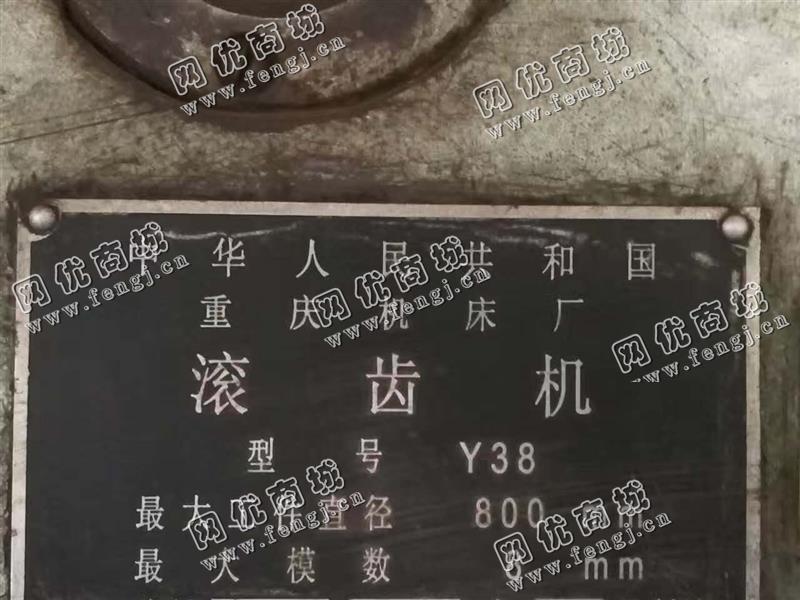 网优商城
www.fengj.cn
网优商城
www.fengj.cn
中华人民共和国
重庆机床厂
网优商城
www.fengj.cn
网优商城
www.fengj.cn
网优商城
www.fengj.cn
滚齿机
型号 Y38
最大工件直径 800 mm
最大模数 mm
网优商城
www.fengj.cn
网优商城
www.fengj.cn